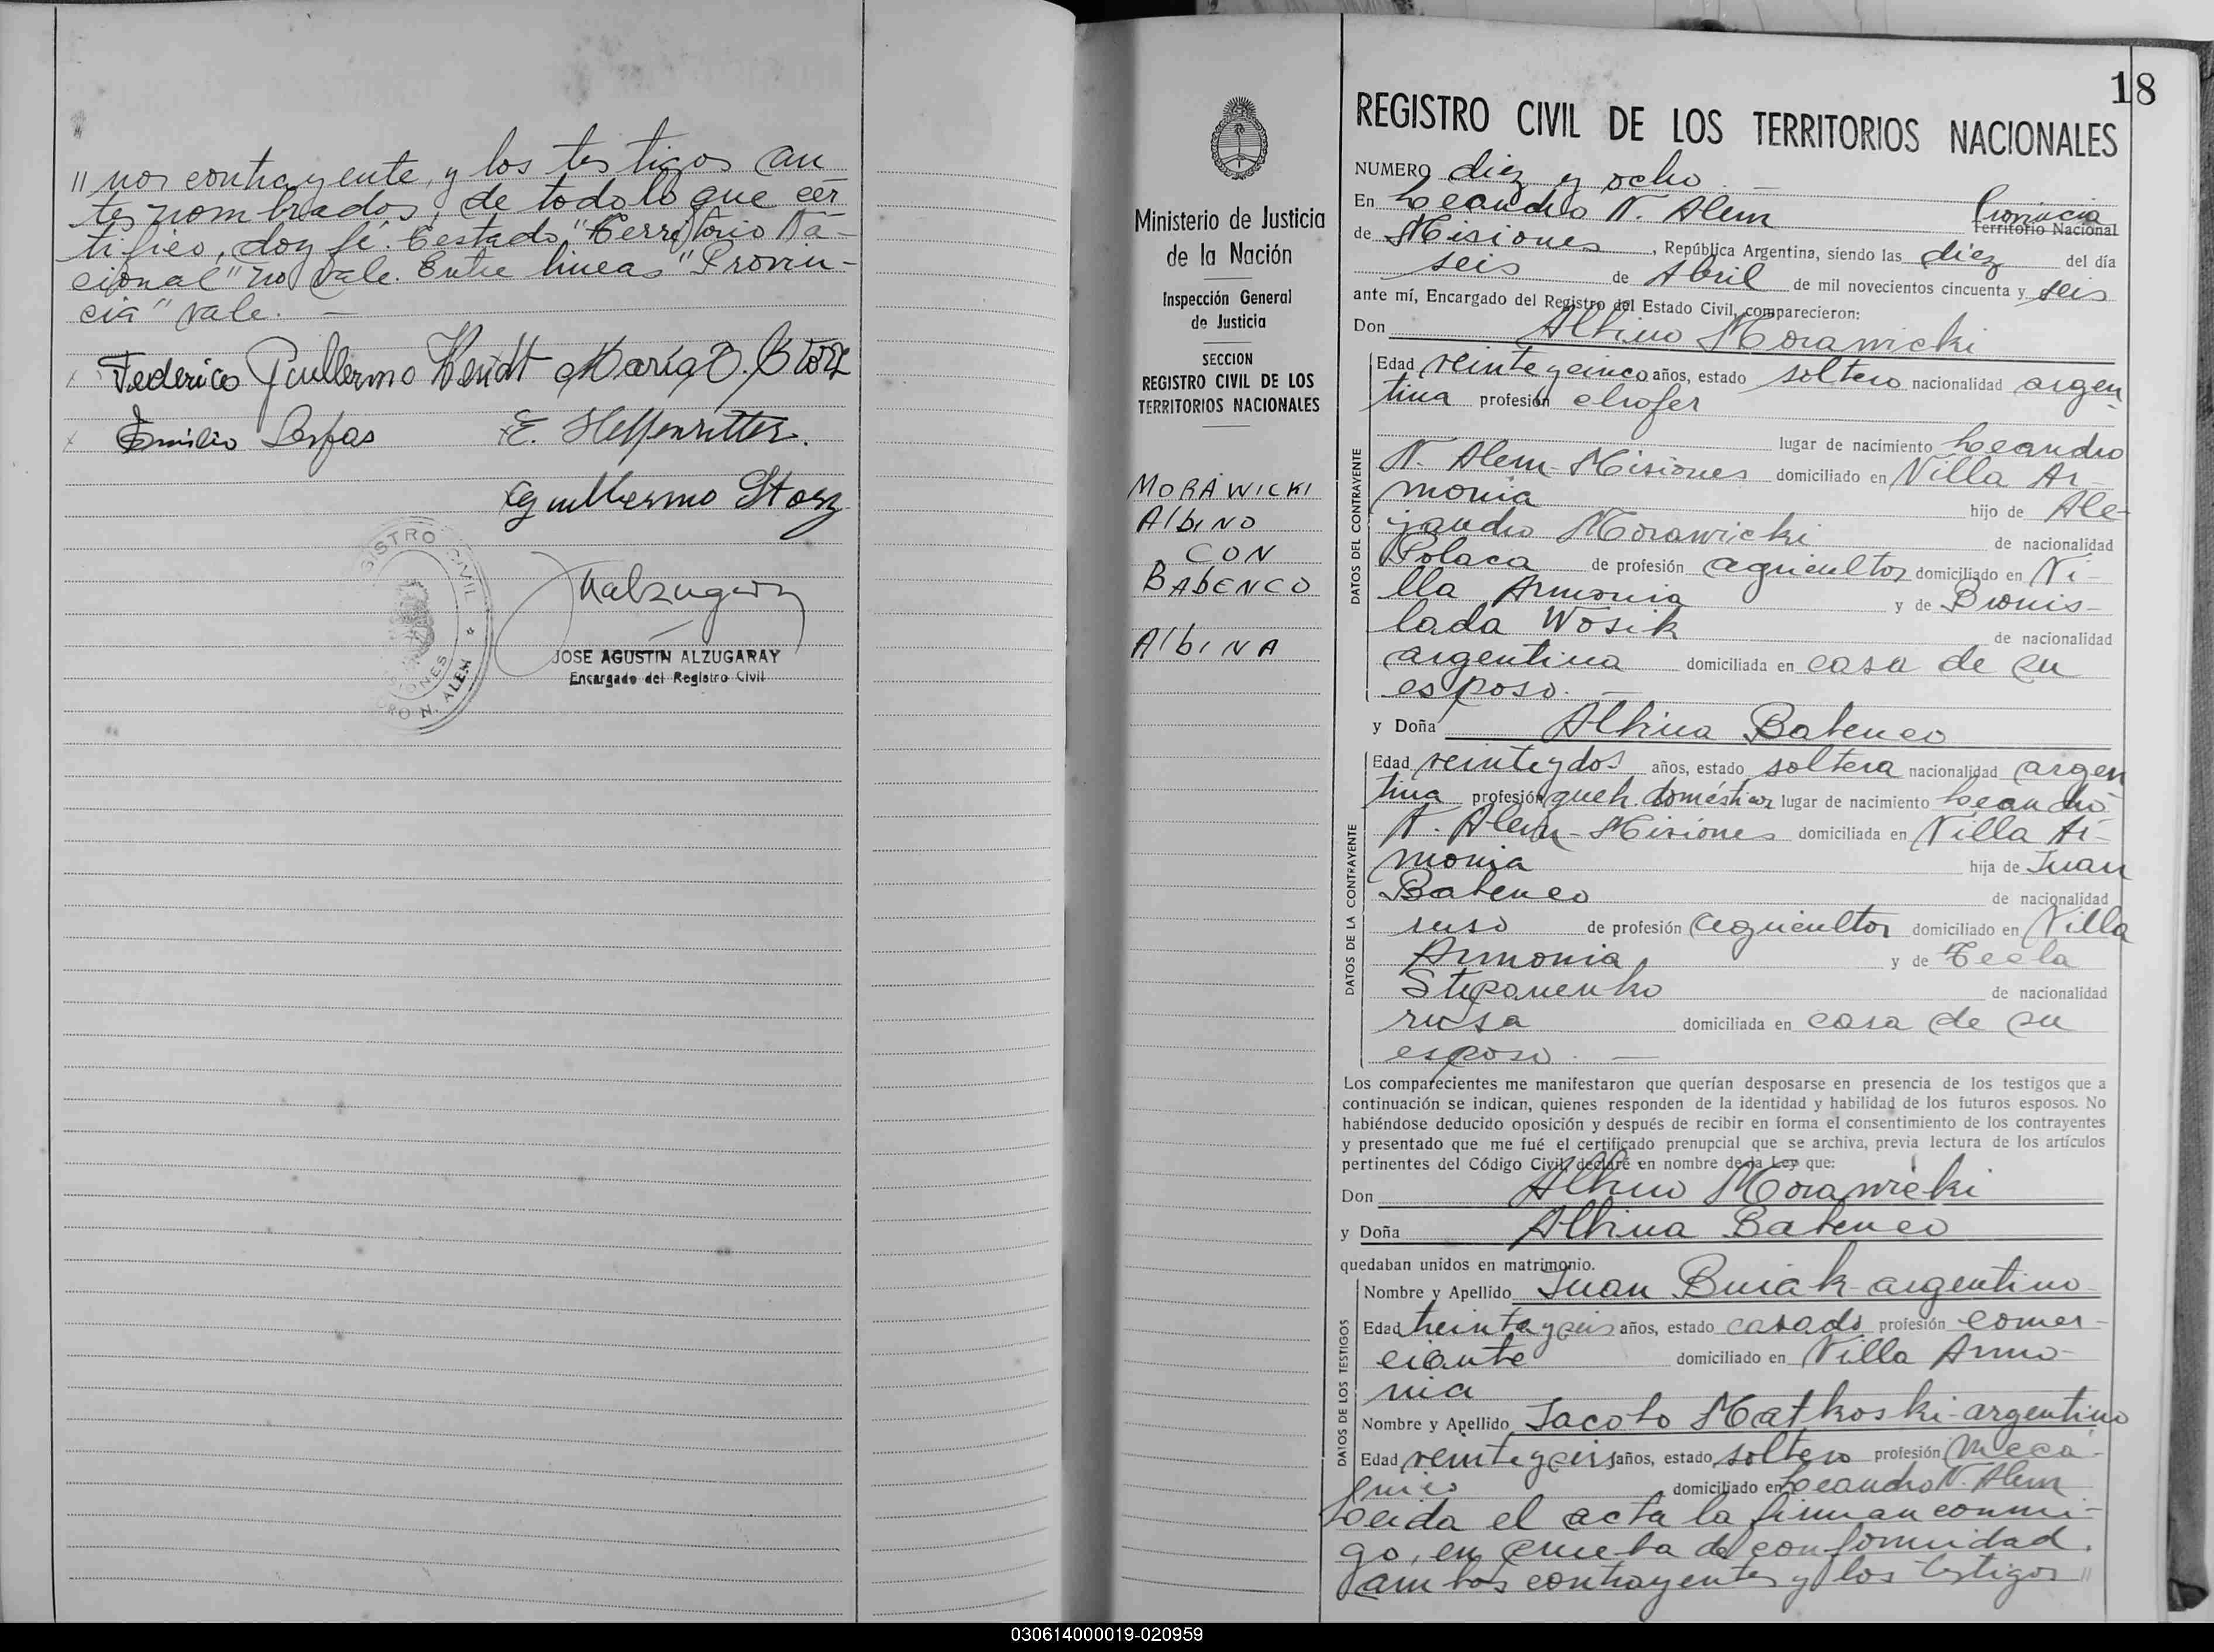 " nor contrayente, y los testigos an
tes nombrados, de todo lo que cer
tifico, doy fé. Testado "Territorio Na-
cional" no vale. Entre lineas "Provin-
cia" vale. —
Federico Guillermo Wendt María O. Storz
Emilio Serfas E. Heffenritter.
Guillermo Storz
REGISTRO CIVIL
MISIONES
LEANDRO N. ALEM
JOSE AGUSTIN ALZUGARAY
Encargado del Registro Civil
18
Ministerio de Justicia
de la Nación
Inspección General
de Justicia
SECCION
REGISTRO CIVIL DE LOS
TERRITORIOS NACIONALES
MORAWICKI
AlbiNO
CON
BABENCO
AlbiNA
REGISTRO CIVIL DE LOS TERRITORIOS NACIONALES
NUMERO diez y ocho —
En Leandro N. Alem Provincia Territorio Nacional
de Misiones, República Argentina, siendo las diez del día
seis de Abril de mil novecientos cincuenta y seis
ante mí, Encargado del Registro del Estado Civil, comparecieron:
Don Albino Morawicki
DATOS DEL CONTRAYENTE
Edad veinte y cinco años, estado soltero nacionalidad argen
tina profesión chofer
lugar de nacimiento Leandro
N. Alem - Misiones domiciliado en Villa Ar-
monia hijo de Ale-
jandro Morawicki de nacionalidad
Polaca de profesión agricultor domiciliado en Vi-
lla Armonia y de Bronis-
lada Wosik de nacionalidad
argentina domiciliada en casa de su
esposo. —
y Doña Albina Babenco
DATOS DE LA CONTRAYENTE
Edad veinte y dos años, estado soltera nacionalidad argen
tina profesión queh. domésticos lugar de nacimiento Leandro
N. Alem - Misiones domiciliada en Villa Ar-
monia hija de Juan
Babenco de nacionalidad
ruso de profesión agricultor domiciliado en Villa
Armonia y de Tecla
Steponenko de nacionalidad
rusa domiciliada en casa de su
esposo. —
Los comparecientes me manifestaron que querían desposarse en presencia de los testigos que a
continuación se indican, quienes responden de la identidad y habilidad de los futuros esposos. No
habiéndose deducido oposición y después de recibir en forma el consentimiento de los contrayentes
y presentado que me fué el certificado prenupcial que se archiva, previa lectura de los artículos
pertinentes del Código Civil, declaré en nombre de la Ley que:
Don Albino Morawicki
y Doña Albina Babenco
quedaban unidos en matrimonio.
DATOS DE LOS TESTIGOS
Nombre y Apellido Juan Buiak - argentino
Edad treinta y seis años, estado casado profesión comer-
ciante domiciliado en Villa Armo-
nia
Nombre y Apellido Jacobo Matkoski - argentino
Edad veinte y seis años, estado soltero profesión Mecá-
nico domiciliado en Leandro N. Alem
Leida el acta la firman conmi-
go, en prueba de conformidad,
ambos contrayentes y los testigos "
030614000019-020959